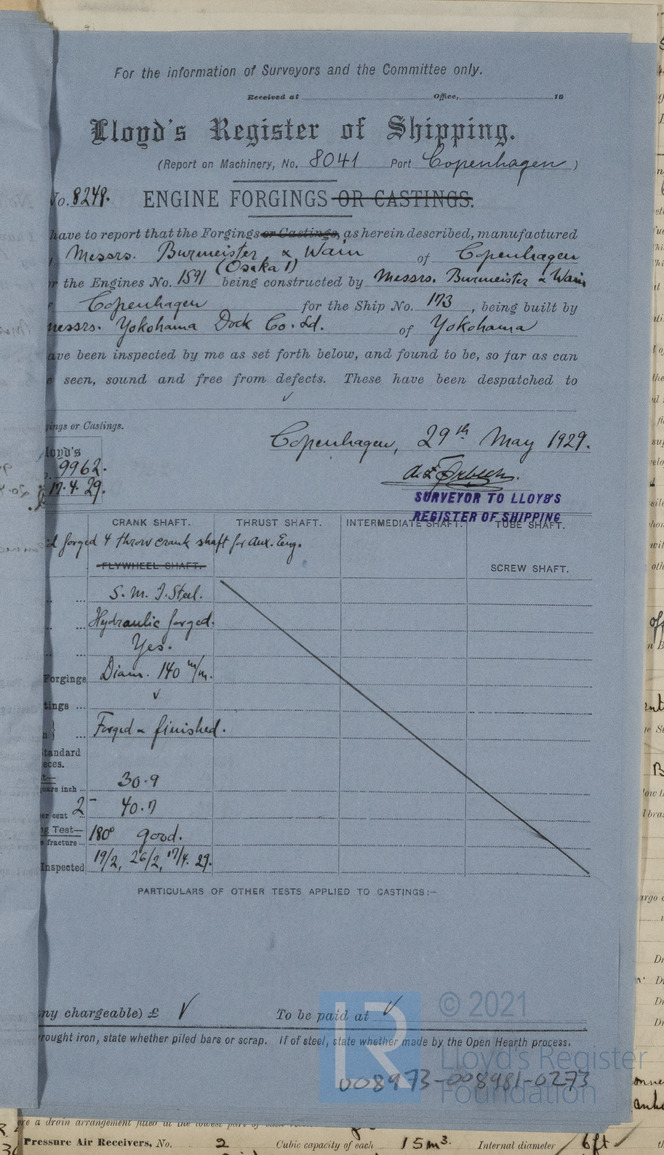 For the information of Surveyors and the Committee only.
Received at Office, 19
Lloyd's Register of Shipping.
(Report on Machinery, No. 8041 Port Copenhagen)
No. 8248.
ENGINE FORGINGS OR CASTINGS.
have to report that the Forgings or Castings, as herein described, manufactured
Messrs. Burmeister & Wain of Copenhagen
(Osaka 1)
r the Engines No. 1591 being constructed by Messrs. Burmeister & Wain
Copenhagen for the Ship No. 173, being built by
essrs. Yokohama Dock Co. Ld. of Yokohama
ave been inspected by me as set forth below, and found to be, so far as can
e seen, sound and free from defects. These have been despatched to
ings or Castings.
Copenhagen, 29th May 1929.
loyd's
9962.
17.4.29.
SURVEYOR TO LLOYD'S
REGISTER OF SHIPPING
CRANK SHAFT. THRUST SHAFT. INTERMEDIATE SHAFT. TUBE SHAFT.
d forged 4 throw crank shaft for Aux. Eng.
FLYWHEEL SHAFT. SCREW SHAFT.
S. M. I. Steel.
Hydraulic forged.
Yes.
Forgings Diam. 140 m/m.
tings ... v
Forged & finished.
tandard
eces.
uare inch 30.9
er cent 2" 40.7
g Test— 180° good.
e fracture
Inspected 19/2, 26/2, 17/4. 29.
PARTICULARS OF OTHER TESTS APPLIED TO CASTINGS:—
ny chargeable) £ √ To be paid at √
rought iron, state whether piled bars or scrap. If of steel, state whether made by the Open Hearth process.
© 2021
LR
Lloyd's Register
Foundation
008973-008981-0273
re a drain arrangement fitted at the lowest part of
Pressure Air Receivers, No. 2 Cubic capacity of each 15 m³. Internal diameter 6 ft